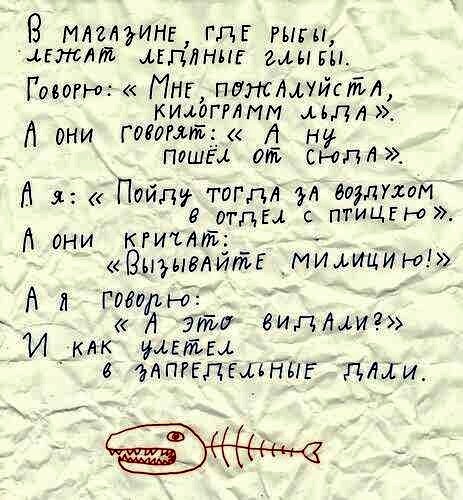 В МАГАЗИНЕ, ГДЕ РЫБЫ,
ЛЕЖАТ ЛЕДЯНЫЕ ГЛЫБЫ.
ГОВОРЮ: « МНЕ, ПОЖАЛУЙСТА,
КИЛОГРАММ ЛЬДА ».
А ОНИ ГОВОРЯТ: « А НУ
ПОШЁЛ ОТ СЮДА».
А Я: « ПОЙДУ ТОГДА ЗА ВОЗДУХОМ
В ОТДЕЛ С ПТИЦЕЮ».
А ОНИ КРИЧАТ:
«ВЫЗЫВАЙТЕ МИЛИЦИЮ!»
А Я ГОВОРЮ:
« А ЭТО ВИДАЛИ?»
И КАК УЛЕТЕЛ
В ЗАПРЕДЕЛЬНЫЕ ДАЛИ.